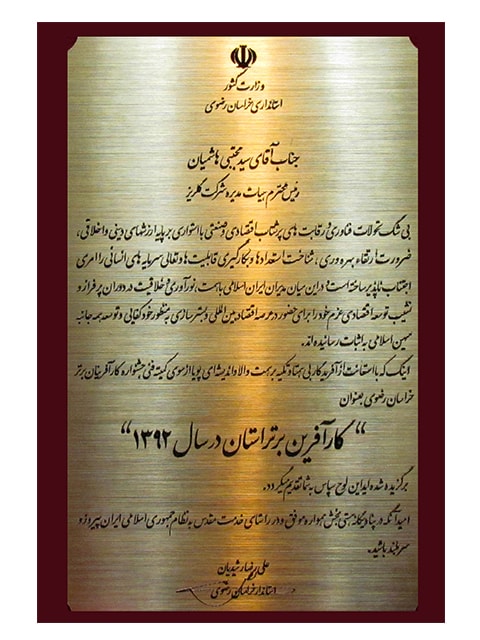 وزارت کشور
استانداری خراسان رضوی
جناب آقای سید مجتبی هاشمیان
رئیس محترم هیات مدیره شرکت گلریز
بی شک تحولات فناوری و رقابت های پرشتاب اقتصادی و صنعتی با استواری بر پایه ارزشهای دینی و اخلاقی ،
ضرورت ارتقاء بهره وری ، شناخت استعدادها و بکارگیری قابلیت ها و تعالی سرمایه های انسانی را امری
اجتناب ناپذیر ساخته است و در این میان مدیران ایران اسلامی با همت ، نوآوری و خلاقیت در دوران پر فراز و
نشیب توسعه اقتصادی عزم خود را برای حضور در عرصه اقتصاد بین المللی و بستر سازی به منظور خودکفایی و توسعه همه جانبه
میهن اسلامی به اثبات رسانیده اند.
اینک که با استعانت از آفریدگار بی همتا و تکیه بر همت والا و اندیشه ای پویا از سوی کمیته فنی جشنواره کارآفرینان برتر
خراسان رضوی بعنوان
“ کارآفرین برتر استان در سال ۱۳۹۲ “
برگزیده شده اید این لوح سپاس به شما تقدیم میگردد.
امید آنکه در پناه یگانه هستی بخش همواره موفق و در راستای خدمت مقدس به نظام جمهوری اسلامی ایران پیروز و
سربلند باشید.
علیرضا رشیدیان
استاندار خراسان رضوی